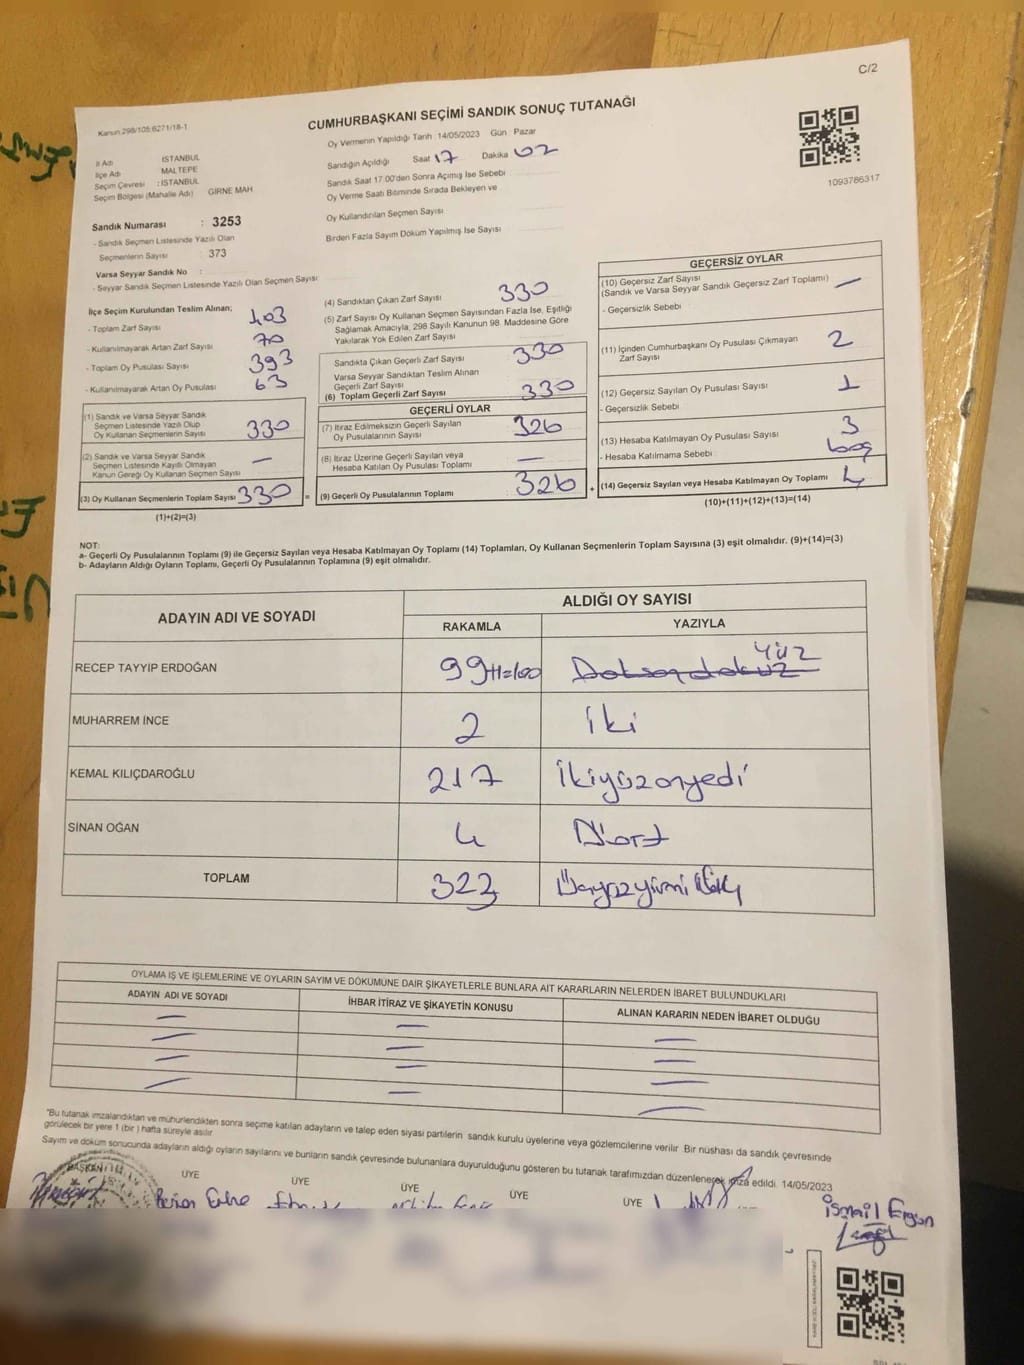 C/2
Kanun 298/105:6271/18-1
CUMHURBAŞKANI SEÇİMİ SANDIK SONUÇ TUTANAĞI
Oy Vermenin Yapıldığı Tarih :14/05/2023 Gün Pazar
Sandığın Açıldığı Saat 17 Dakika 02
Sandık Saat 17.00'den Sonra Açımış İse Sebebi
Oy Verme Saati Bitiminde Sırada Bekleyen ve
Oy Kullandırılan Seçmen Sayısı
Birden Fazla Sayım Döküm Yapılmış İse Sayısı
1093786317
İl Adı İSTANBUL
İlçe Adı MALTEPE
Seçim Çevresi : İSTANBUL
Seçim Bölgesi (Mahalle Adı) GİRNE MAH
Sandık Numarası : 3253
- Sandık Seçmen Listesinde Yazılı Olan
Seçmenlerin Sayısı : 373
Varsa Seyyar Sandık No :
- Seyyar Sandık Seçmen Listesinde Yazılı Olan Seçmen Sayısı :
İlçe Seçim Kurulundan Teslim Alınan;
- Toplam Zarf Sayısı 403
- Kullanılmayarak Artan Zarf Sayısı 70
- Toplam Oy Pusulası Sayısı 393
- Kullanılmayarak Artan Oy Pusulası 63
(1) Sandık ve Varsa Seyyar Sandık
Seçmen Listesinde Yazılı Olup
Oy Kullanan Seçmenlerin Sayısı 330
(2) Sandık ve Varsa Seyyar Sandık
Seçmen Listesinde Kayıtlı Olmayan
Kanun Gereği Oy Kullanan Seçmen Sayısı —
(3) Oy Kullanan Seçmenlerin Toplam Sayısı 330 =
(1)+(2)=(3)
(4) Sandıktan Çıkan Zarf Sayısı 330
(5) Zarf Sayısı Oy Kullanan Seçmen Sayısından Fazla İse, Eşitliği
Sağlamak Amacıyla, 298 Sayılı Kanunun 98. Maddesine Göre
Yakılarak Yok Edilen Zarf Sayısı
Sandıkta Çıkan Geçerli Zarf Sayısı 330
Varsa Seyyar Sandıktan Teslim Alınan
Geçerli Zarf Sayısı
(6) Toplam Geçerli Zarf Sayısı 330
GEÇERLİ OYLAR
(7) İtiraz Edilmeksizin Geçerli Sayılan
Oy Pusulalarının Sayısı 326
(8) İtiraz Üzerine Geçerli Sayılan veya
Hesaba Katılan Oy Pusulası Toplamı —
(9) Geçerli Oy Pusulalarının Toplamı 326 +
GEÇERSİZ OYLAR
(10) Geçersiz Zarf Sayısı —
(Sandık ve Varsa Seyyar Sandık Geçersiz Zarf Toplamı)
- Geçersizlik Sebebi
(11) İçinden Cumhurbaşkanı Oy Pusulası Çıkmayan
Zarf Sayısı 2
(12) Geçersiz Sayılan Oy Pusulası Sayısı 1
- Geçersizlik Sebebi
(13) Hesaba Katılmayan Oy Pusulası Sayısı 3
- Hesaba Katılmama Sebebi boş
(14) Geçersiz Sayılan veya Hesaba Katılmayan Oy Toplamı 4
(10)+(11)+(12)+(13)=(14)
NOT:
a- Geçerli Oy Pusulalarının Toplamı (9) ile Geçersiz Sayılan veya Hesaba Katılmayan Oy Toplamı (14) Toplamları, Oy Kullanan Seçmenlerin Toplam Sayısına (3) eşit olmalıdır. (9)+(14)=(3)
b- Adayların Aldığı Oyların Toplamı, Geçerli Oy Pusulalarının Toplamına (9) eşit olmalıdır.
ADAYIN ADI VE SOYADI
ALDIĞI OY SAYISI
RAKAMLA YAZIYLA
RECEP TAYYİP ERDOĞAN 99+1=100 Doksandokuz Yüz
MUHARREM İNCE 2 İki
KEMAL KILIÇDAROĞLU 217 İkiyüzonyedi
SİNAN OĞAN 4 Dört
TOPLAM 323
OYLAMA İŞ VE İŞLEMLERİNE VE OYLARIN SAYIM VE DÖKÜMÜNE DAİR ŞİKAYETLERLE BUNLARA AİT KARARLARIN NELERDEN İBARET BULUNDUKLARI
ADAYIN ADI VE SOYADI İHBAR İTİRAZ VE ŞİKAYETİN KONUSU ALINAN KARARIN NEDEN İBARET OLDUĞU
*Bu tutanak imzalandıktan ve mühürlendikten sonra seçime katılan adayların ve talep eden siyasi partilerin sandık kurulu üyelerine veya gözlemcilerine verilir. Bir nüshası da sandık çevresinde
görülecek bir yere 1 (bir) hafta süreyle asılır
Sayım ve döküm sonucunda adayların aldığı oyların sayılarını ve bunların sandık çevresinde bulunanlara duyurulduğunu gösteren bu tutanak tarafımızdan düzenlenerek imza edildi. 14/05/2023
BAŞKAN ÜYE ÜYE ÜYE ÜYE ÜYE
İsmail Ergün